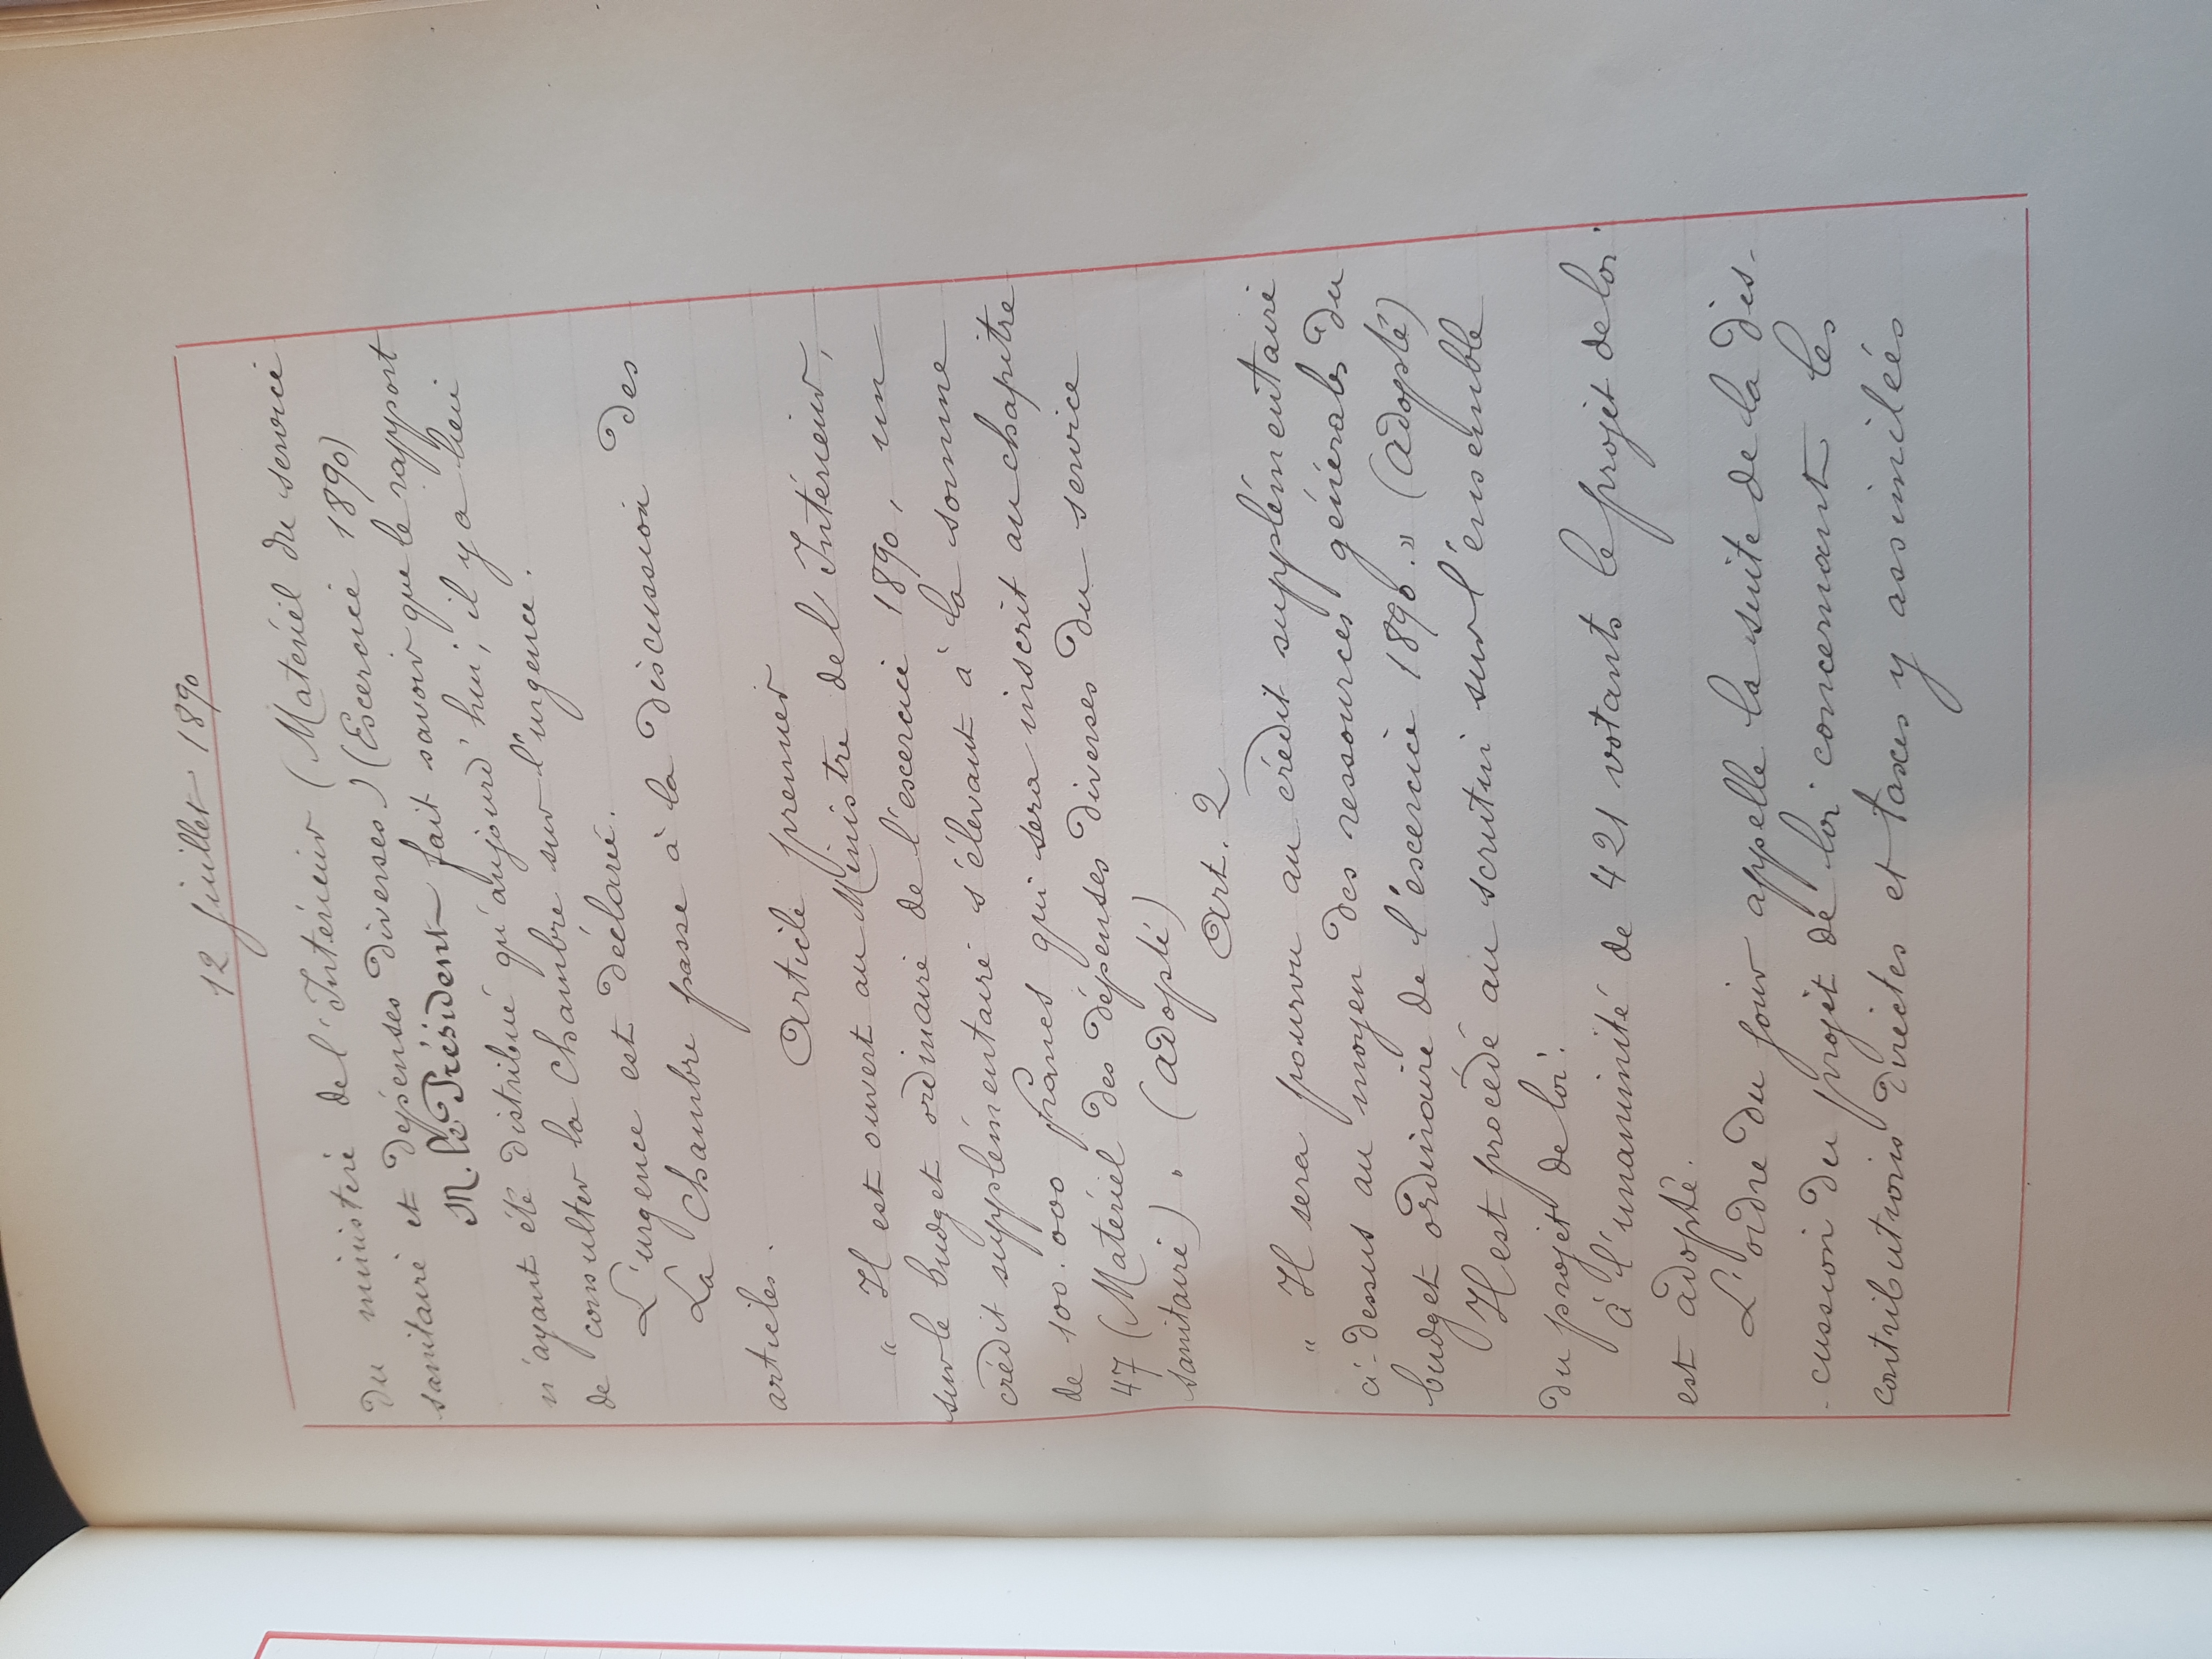 12 juillet 1890
du ministère de l'Intérieur (Matériel du service
sanitaire et dépenses diverses) (Exercice 1890)
M. le Président fait savoir que le rapport
n'ayant été distribué qu'aujourd'hui, il y a lieu
de consulter la Chambre sur l'urgence.
L'urgence est déclarée.
La Chambre passe à la discussion des
articles.
Article premier
« Il est ouvert au Ministre de l'Intérieur,
sur le budget ordinaire de l'exercice 1890, un
crédit supplémentaire s'élevant à la somme
de 100.000 francs qui sera inscrit au chapitre
47 (Matériel des dépenses diverses du service
sanitaire) » (Adopté)
Art. 2
« Il sera pourvu au crédit supplémentaire
ci-dessus au moyen des ressources générales du
budget ordinaire de l'exercice 1890. » (Adopté)
Il est procédé au scrutin sur l'ensemble
du projet de loi.
À l'unanimité de 421 votants le projet de loi
est adopté.
L'ordre du jour appelle la suite de la dis-
-cussion du projet de loi concernant les
contributions directes et taxes y assimilées